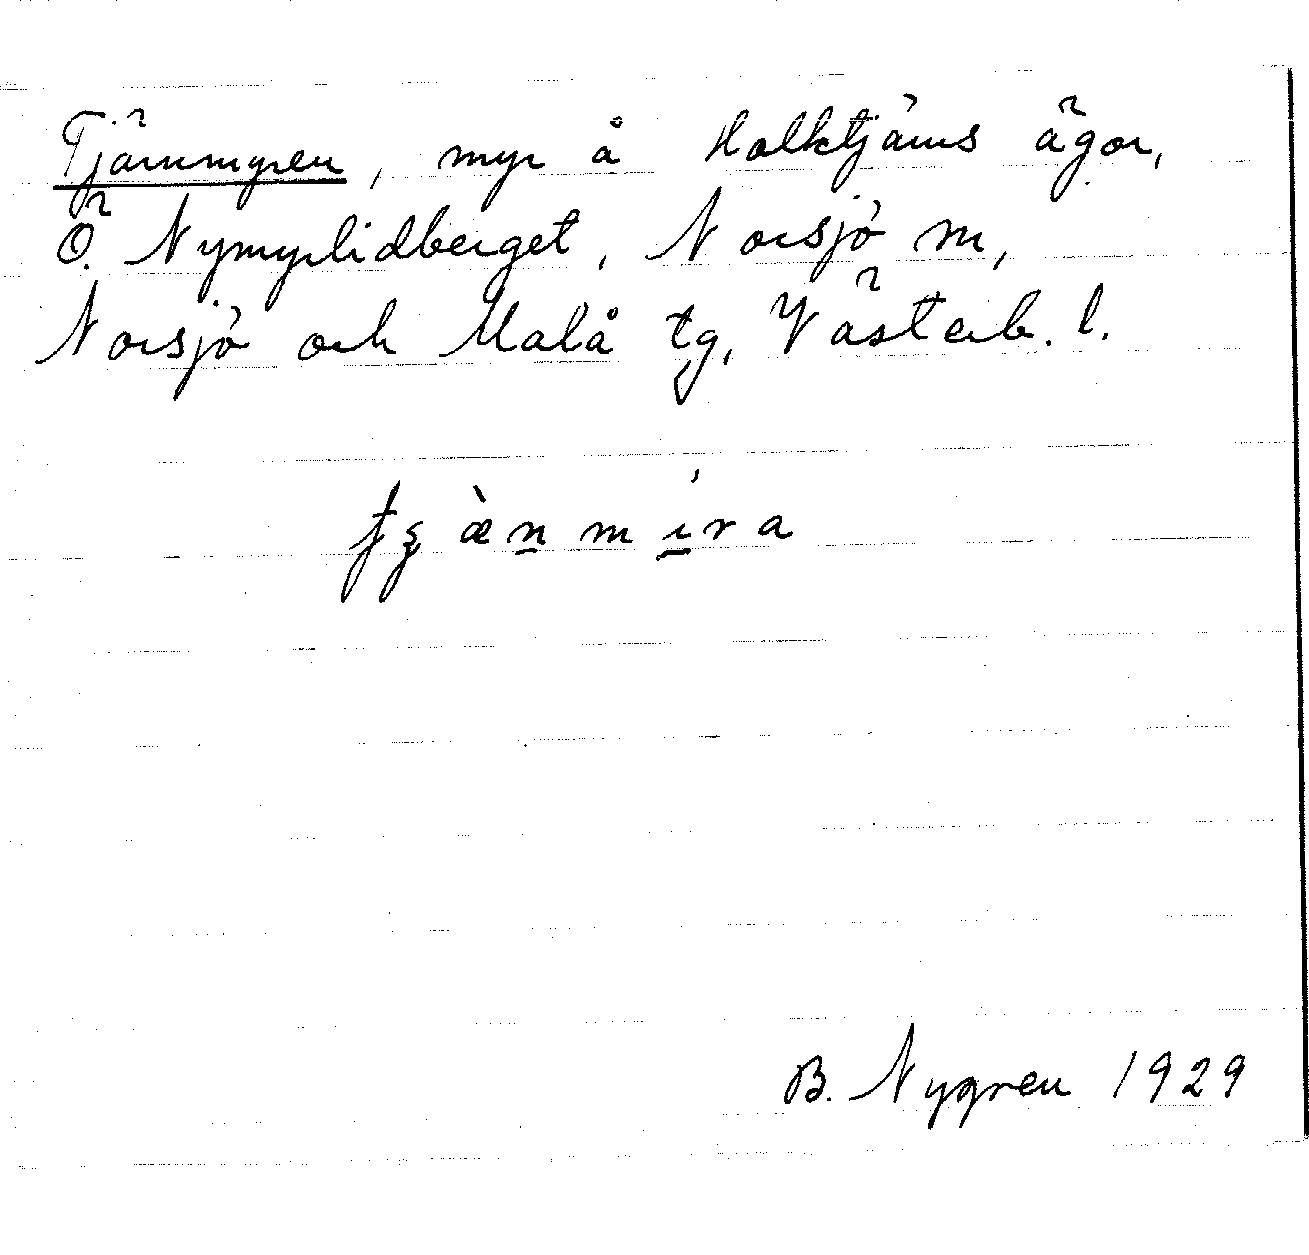 Tjärnmyren, myr å Holktjärns ägor,
Ö. Nymyrlidberget, Norsjö sn,
Norsjö och Malå tg, Västerb. l.
tʒæ̀n̠mi̠ra
B. Nygren 1929